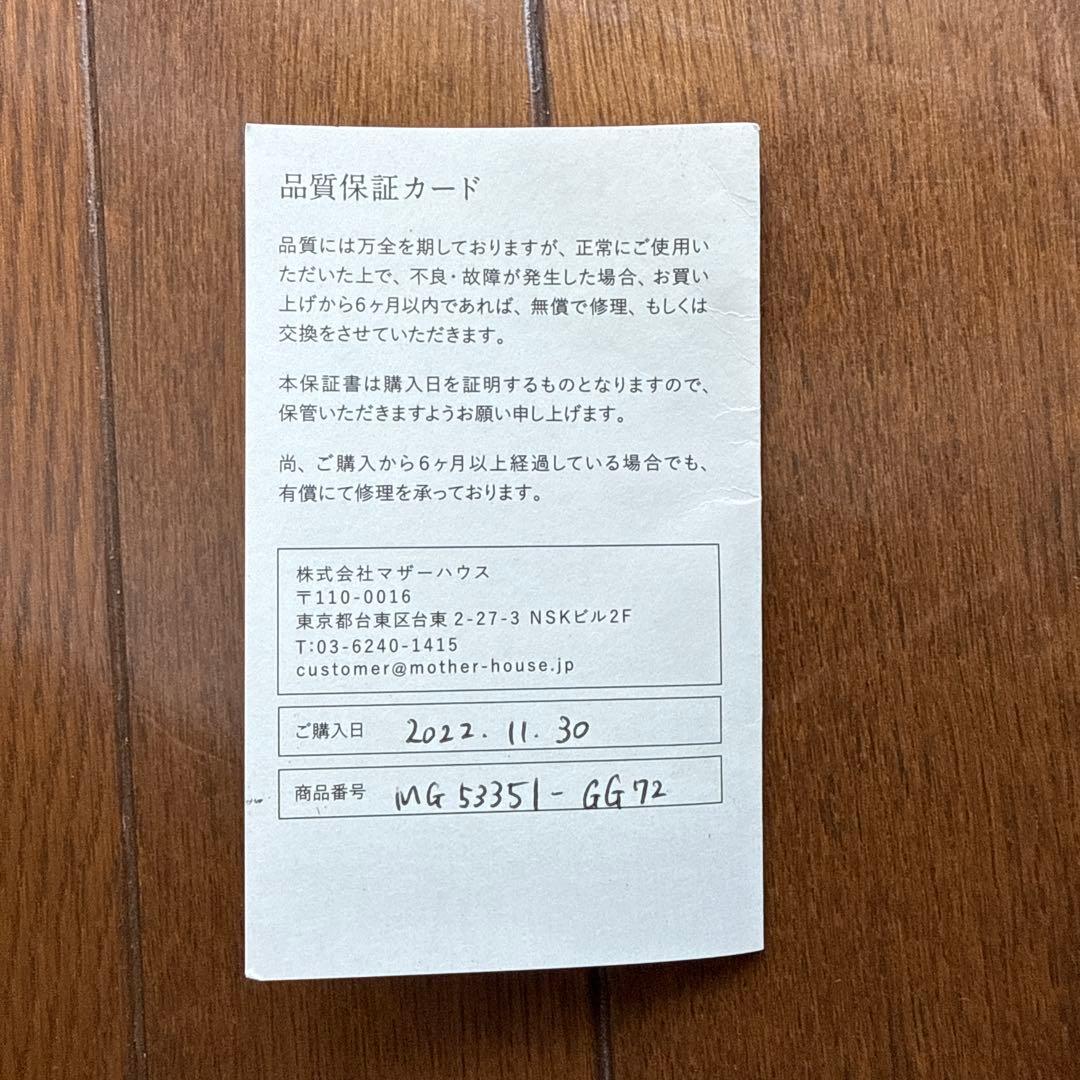 品質保証カード
品質には万全を期しておりますが、正常にご使用い
ただいた上で、不良・故障が発生した場合、お買い
上げから6ヶ月以内であれば、無償で修理、もしくは
交換をさせていただきます。
本保証書は購入日を証明するものとなりますので、
保管いただきますようお願い申し上げます。
尚、ご購入から6ヶ月以上経過している場合でも、
有償にて修理を承っております。
株式会社マザーハウス
〒110-0016
東京都台東区台東2-27-3 NSKビル2F
T:03-6240-1415
customer@mother-house.jp
ご購入日 2022. 11. 30
商品番号 MG 53351 - GG72